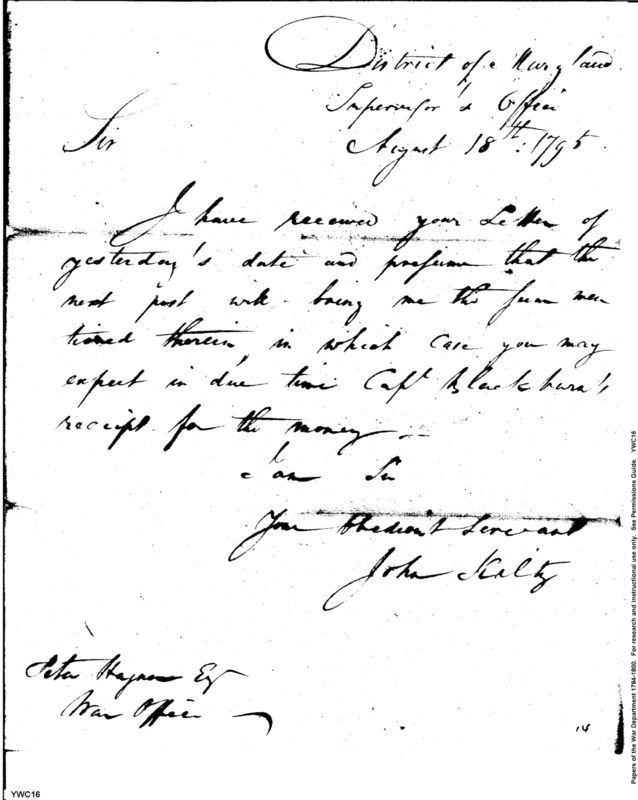 District of Maryland
Supervisor's Office
August 18th: 1795
Sir
I have received your Letter of
yesterday's date and presume that the
next post will bring me the sum men
tioned therein, in which case you may
expect in due time Capt Blackburn's
receipt for the money.
I am Sir
Your Obedient Servant
John Kilty
Peter Hagner Esq
War Office
14
YWC16
Papers of the War Department 1784-1800. For research and instructional use only. See Permissions Guide. YWC16